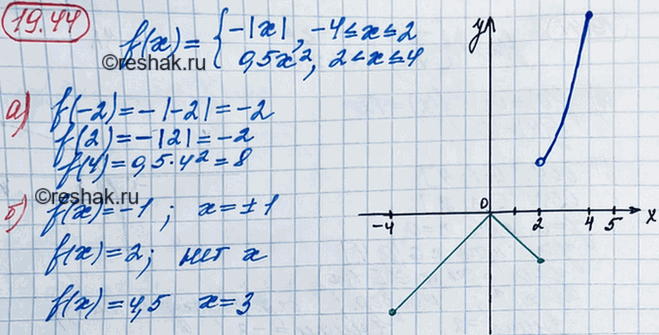 19.44
f(x) = { -|x|, -4≤x≤2
0,5x², 2<x≤4
©reshak.ru
а) f(-2)=-|-2|=-2
f(2)=-|2|=-2
f(4)=0,5·4²=8
©reshak.ru
б) f(x)=-1; x=±1
f(x)=2; нет x
f(x)=4,5 x=3
y
0
-4 2 4 5 x